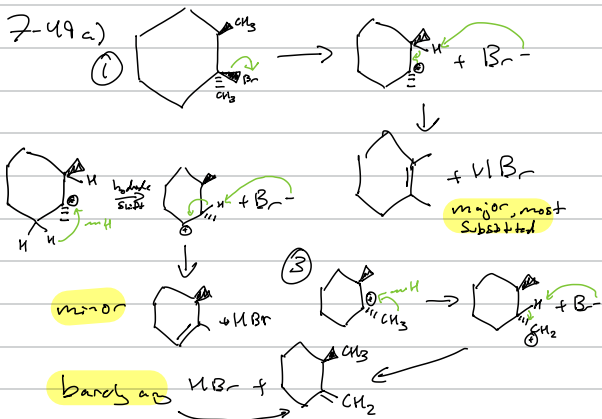 7-49 a)
①
CH₃
Br
CH₃
H
⊕
+ Br⁻
+ HBr
major, most
substituted
H
⊕
~H
H H
hydride
shift
H
⊕
+ Br⁻
minor
+ HBr
③
~H
⊕
CH₃
H
+ Br⁻
CH₂
⊕
barely any
HBr +
CH₃
CH₂